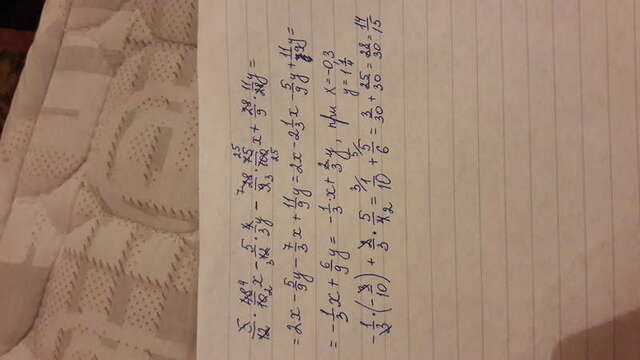 5/12 · 48/10 x - 5/12 · 4/3 y - 28/9 · 75/100 x + 28/9 · 11/28 y =
= 2x - 5/9 y - 7/3 x + 11/9 y = 2x - 2 1/3 x - 5/9 y + 11/9 y =
= - 1/3 x + 6/9 y = - 1/3 · x + 2/3 y, при x = -0,3
y = 1 1/4
- 1/3 · (- 3/10) + 2/3 · 5/4 = 1/10 + 5/6 = 3/30 + 25/30 = 28/30 = 14/15